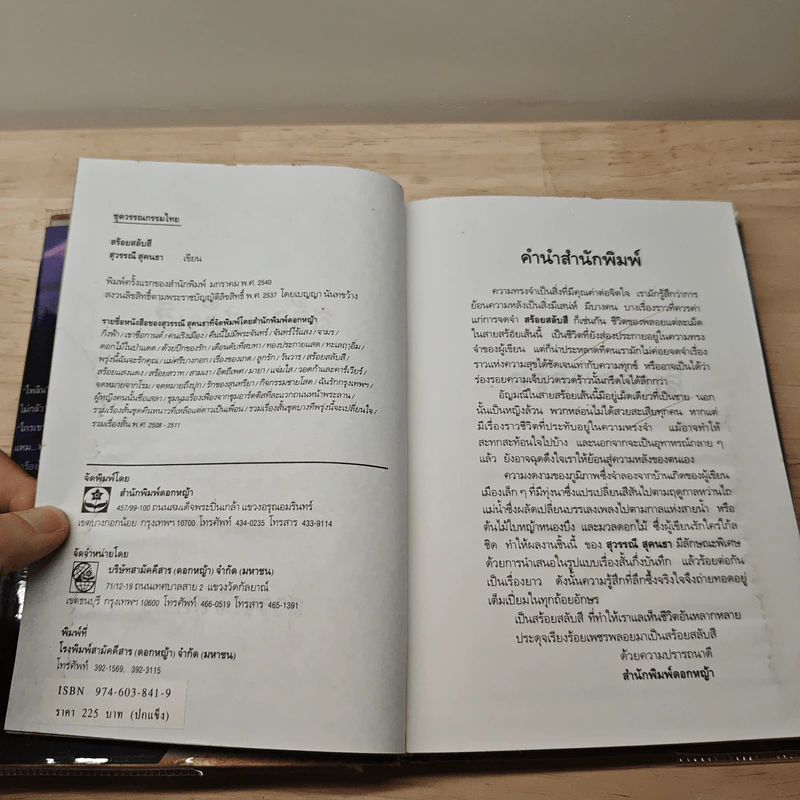 ชุดวรรณกรรมไทย
สร้อยสลับสี
สุวรรณี สุคนธา เขียน
พิมพ์ครั้งแรกของสำนักพิมพ์ มกราคม พ.ศ. 2540
สงวนลิขสิทธิ์ตามพระราชบัญญัติลิขสิทธิ์ พ.ศ. 2537 โดยเบญญา นันทขว้าง
รายชื่อหนังสือของสุวรรณี สุคนธาที่จัดพิมพ์โดยสำนักพิมพ์ดอกหญ้า
กิ่งฟ้า / เขาชื่อกานต์ / คนเริงเมือง / คืนนี้ไม่มีพระจันทร์ / จันทร์ไร้แสง / จามร /
ดอกไม้ในป่าแดด / ด้วยปีกของรัก / เดือนดับที่สบทา / ทองประกายแสด / ทะเลฤๅอิ่ม /
พรุ่งนี้ฉันจะรักคุณ / แม่ศรีบางกอก / เรื่องของเกด / ลูกรัก / วันวาร / สร้อยสลับสี /
สร้อยแสงแดง / สร้อยสวาท / สามเงา / อีตถีเพศ / มายา / แจ่มใส / วอดก้าและคาร์เวียร์ /
จดหมายจากโรม / จดหมายถึงปุก / รักของสุนทรียา / กิจกรรมชายโสด / ฉันรักกรุงเทพฯ /
ผู้หญิงคนนั้นชื่อเสลา / ชุมนุมเรื่องเฟื่องจากชุมอาร์ตติสที่ละแวกถนนหน้าพระลาน /
รวมเรื่องสั้นชุดคืนหนาวที่เหลือแต่ดาวเป็นเพื่อน / รวมเรื่องสั้นชุดบางทีพรุ่งนี้จะเปลี่ยนใจ /
รวมเรื่องสั้น พ.ศ. 2508 - 2511
จัดพิมพ์โดย
สำนักพิมพ์ดอกหญ้า
457/99-100 ถนนสมเด็จพระปิ่นเกล้า แขวงอรุณอมรินทร์
เขตบางกอกน้อย กรุงเทพฯ 10700 โทรศัพท์ 434-0235 โทรสาร 433-9114
จัดจำหน่ายโดย
บริษัทสามัคคีสาร (ดอกหญ้า) จำกัด (มหาชน)
71/12-19 ถนนเทศบาลสาย 2 แขวงวัดกัลยาณ์
เขตธนบุรี กรุงเทพฯ 10600 โทรศัพท์ 466-0519 โทรสาร 465-1391
พิมพ์ที่
โรงพิมพ์สามัคคีสาร (ดอกหญ้า) จำกัด (มหาชน)
โทรศัพท์ 392-1569, 392-3115
ISBN 974-603-841-9
ราคา 225 บาท (ปกแข็ง)
คำนำสำนักพิมพ์
ความทรงจำเป็นสิ่งที่มีคุณค่าต่อจิตใจ เรามักรู้สึกว่าการ
ย้อนความหลังเป็นสิ่งมีเสน่ห์ มีบางคน บางเรื่องราวที่ควรค่า
แก่การจดจำ สร้อยสลับสี ก็เช่นกัน ชีวิตของพลอยแต่ละเม็ด
ในสายสร้อยเส้นนี้ เป็นชีวิตที่ยังส่องประกายอยู่ในความทรง
จำของผู้เขียน แต่ก็น่าประหลาดที่คนเรามักไม่ค่อยจดจำเรื่อง
ราวแห่งความสุขได้ชัดเจนเท่ากับความทุกข์ หรืออาจเป็นได้ว่า
ร่องรอยความเจ็บปวดรวดร้าวนั้นกรีดใจได้ลึกกว่า
อัญมณีในสายสร้อยเส้นนี้มีอยู่เม็ดเดียวที่เป็นชาย นอก
นั้นเป็นหญิงล้วน พวกหล่อนไม่ได้สวยสะเสียทุกคน หากแต่
มีเรื่องราวชีวิตที่ประทับอยู่ในความทรงจำ แม้อาจทำให้
สะทกสะท้อนใจไปบ้าง และนอกจากจะเป็นอุทาหรณ์กลาย ๆ
แล้ว ยังอาจฉุดดึงใจเราให้ย้อนสู่ความหลังของตนเอง
ความงดงามของภูมิภาพซึ่งจำลองจากบ้านเกิดของผู้เขียน
เมืองเล็ก ๆ ที่มีทุ่งนาซึ่งแปรเปลี่ยนสีสันไปตามฤดูกาลหว่านไถ
แม่น้ำซึ่งผลัดเปลี่ยนบรรเลงเพลงไปตามกาลแห่งสายน้ำ หรือ
ต้นไม้ใบหญ้าหนองบึง และมวลดอกไม้ ซึ่งผู้เขียนรักใคร่ใกล้
ชิด ทำให้ผลงานชิ้นนี้ ของ สุวรรณี สุคนธา มีลักษณะพิเศษ
ด้วยการนำเสนอในรูปแบบเรื่องสั้นกึ่งบันทึก แล้วร้อยต่อกัน
เป็นเรื่องยาว ดังนั้นความรู้สึกที่ลึกซึ้งจริงใจจึงถ่ายทอดอยู่
เต็มเปี่ยมในทุกถ้อยอักษร
เป็นสร้อยสลับสี ที่ทำให้เราแลเห็นชีวิตอันหลากหลาย
ประดุจเรียงร้อยเพชรพลอยมาเป็นสร้อยสลับสี
ด้วยความปรารถนาดี
สำนักพิมพ์ดอกหญ้า